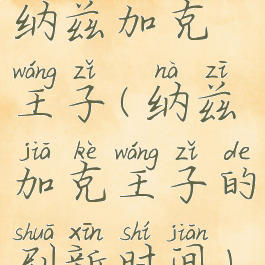 纳兹加克
wáng zǐ nà zī
王子(纳兹
jiā kè wáng zǐ de
加克王子的
shuā xīn shí jiān
刷新时间)